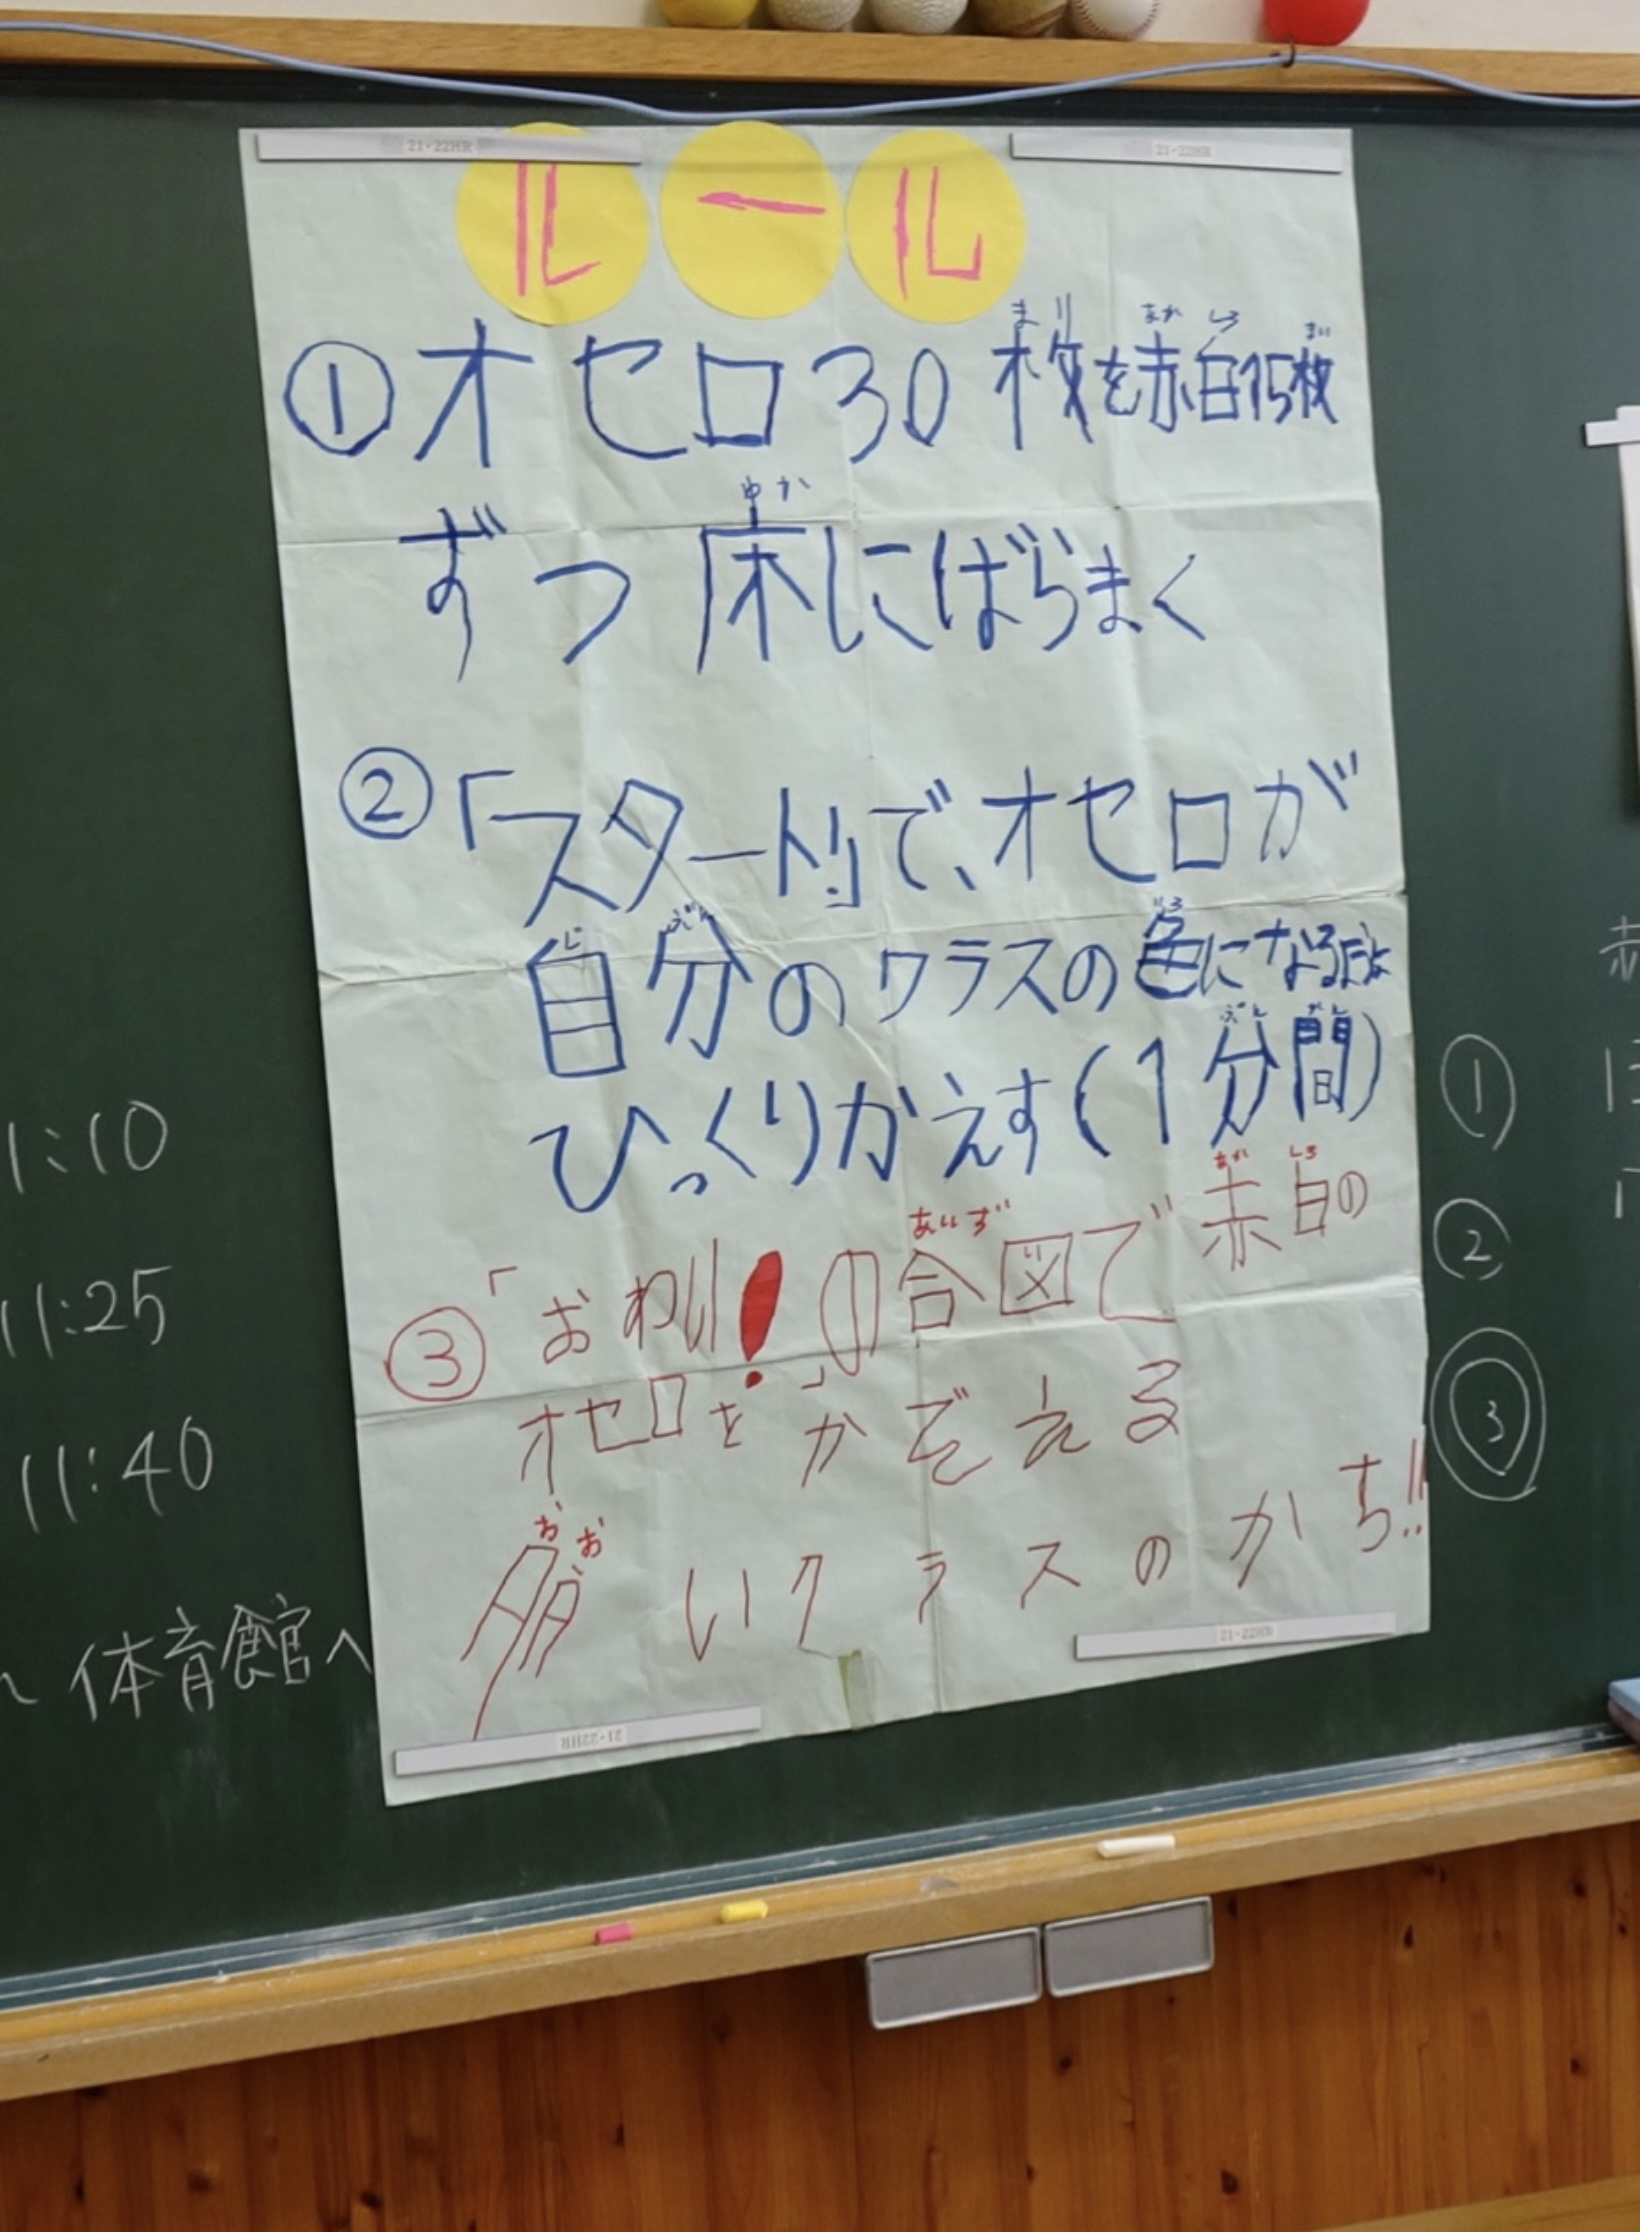 ルール
①オセロ30枚を赤白15枚
ずつ床にばらまく
②「スタート!!」で、オセロが
自分のクラスの色になるように
ひっくりかえす(1分間)
③「おわり!」の合図で赤白の
オセロをかぞえる
多いクラスのかち!!
21-22HR
21-22HR
21-22HR
21-22HR
1:10
11:25
11:40
体育館へ
①
②
③